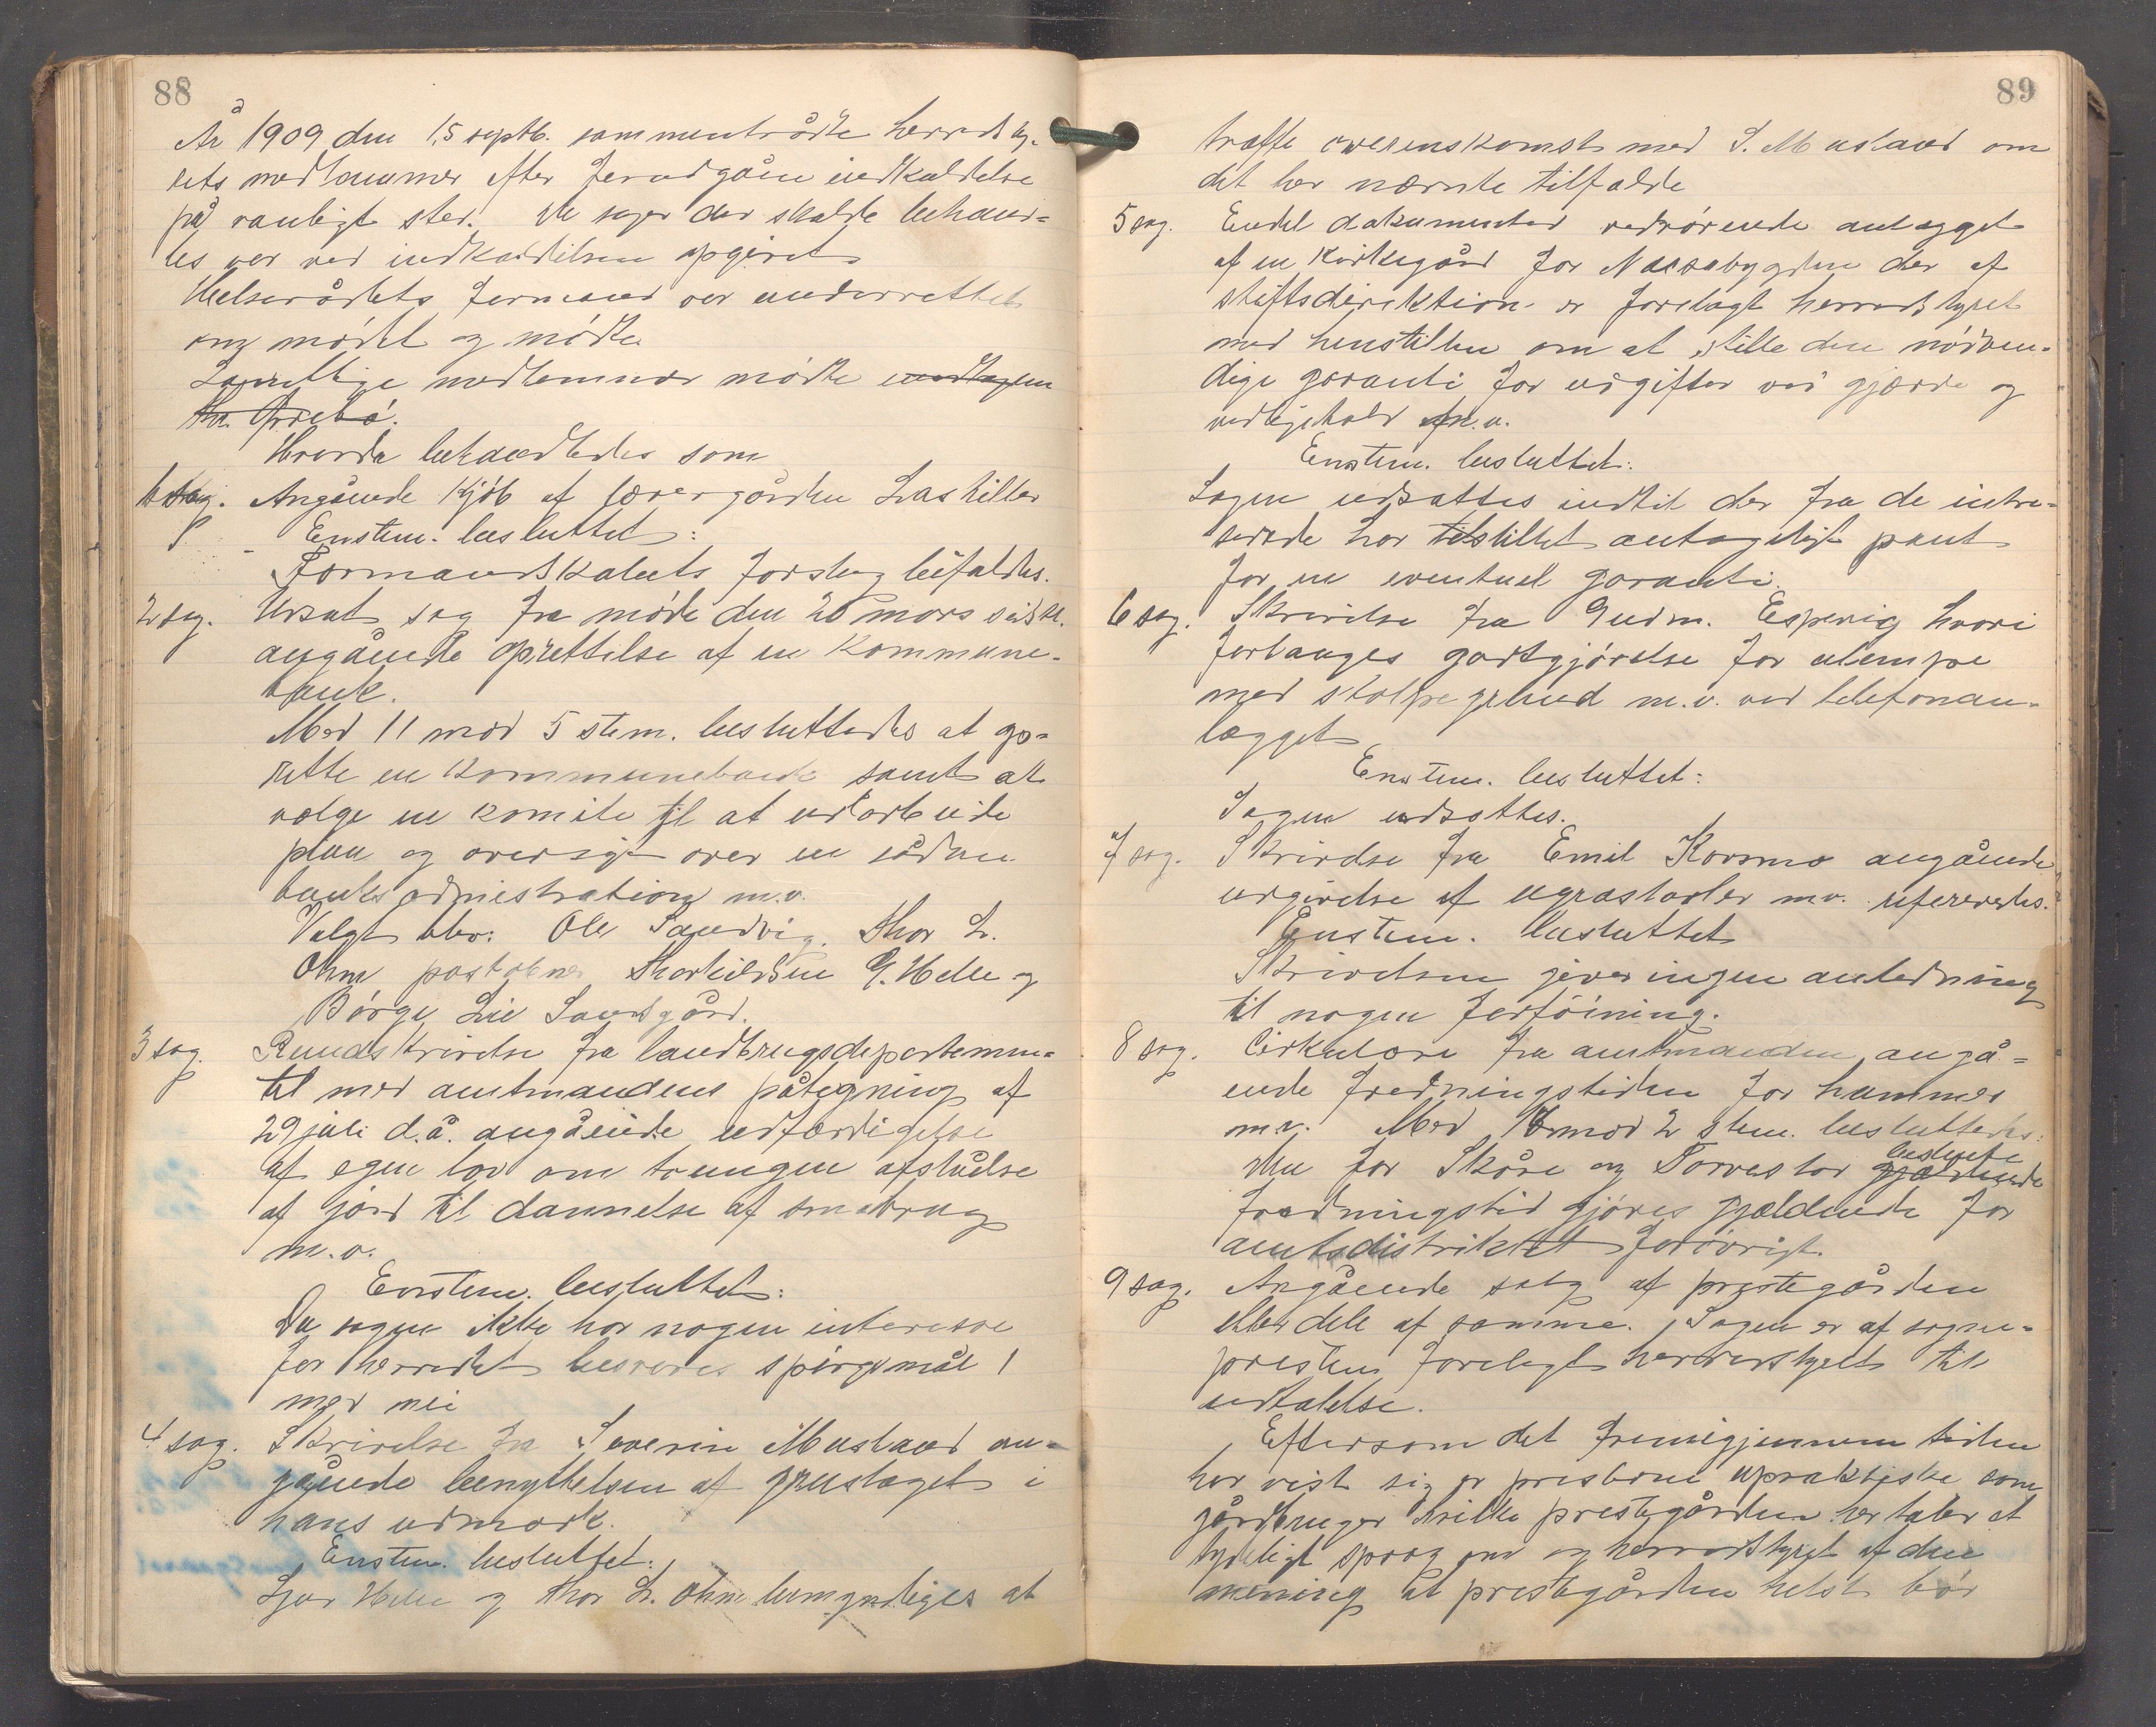 88
År 1909 den 15 septb. sammentrådte herredsty-
rets medlemmer efter forudgåen indkaldelse
på vanligt sted. De sager der skulde behand-
les var ved indkaldelsen opgivet
Helserådets formand var underrettet
om mödet og mödte
Samtlige medlemmer mödte undtagen
Hr.
Hvorda behandledes som
1 sag. Angående kjöb af lærergården
Enstem. besluttet:
Formandskabets forslag bifaldes.
2 sag. Udsat sag fra möde den 26 mars sidstl.
angående oprettelse af en kommune-
bank.
Med 11 mod 5 stem. besluttedes at op-
rette en kommunebank samt at
vælge en komite til at udarbeide
plan og oversigt over en sådan
banks admistration m.v.
Valgt blev: Ole Sandvig. Thor L.
Ohm postobner Thorkildsen G. Helle og
Börge Lie Sandgård.
3 sag. Rundskrivelse fra landbrugsdepartemen-
tet med amtmandens påtegning af
29 juli d.å. angående udfærdigelse
af egen lov om tvungen afståelse
af jord til dannelse af småbrug
m.v.
Enstem. besluttet:
Da sagen ikke har nogen interesse
for herredet besvares spörgsmål 1
med nei
4 sag. Skrivelse fra Severin Musland an-
gående benyttelsen af grustaget i
hans udmark.
Enstem. besluttet:
Sjur Helle og Thor L. Ohm bemyndiges at
89
træffe overenskomst med S. Musland om
det her nævnte tilfælde
5 sag. Endel dokumenter vedrörende anlægget
af en kirkegård for Næssabygden der af
stiftsdirektion er forelagt herredstyret
med henstillen om at stille den nödven-
dige garanti for udgifter ved gjærde og
vedligehold m.v.
Enstem. besluttet:
Sagen udsættes indtil der fra de intre-
serede har tilstillet antageligt pant
for en eventuel garanti.
6 sag. Skrivelse fra Gudm. Espevig hvori
forlanges godtgjörelse for ulempe
med stolpegebud m.v. ved telefonan-
lægget
Enstem. besluttet:
Sagen udsættes.
7 sag. Skrivelse fra Emil Korsmo angående
udgivelse af ugræstavler m.v. refereredes.
Enstem. besluttet
Skrivelsen giver ingen anledning
til nogen forföining.
8 sag. Cirkulære fra amtmanden angå-
ende fredningstiden for hummer
m.v. Med mod 2 stem. besluttedes:
Den for Skåre og Torvestav gjældende bestemte
fredningstid gjöres gjældende for
amtsdistriktet forövrigt.
9 sag. Angående salg af prestegården
eller dele af samme. Sagen er af sogne-
presten forelagt herredsstyret til
udtalelse.
Eftersom det fremigjennem tiden
har vist sig er presterne upraktiske som
gårdbruger hvilke prestegården her taler et
tydeligt sprog om og herredstyret af den
mening at prestegården helst bör